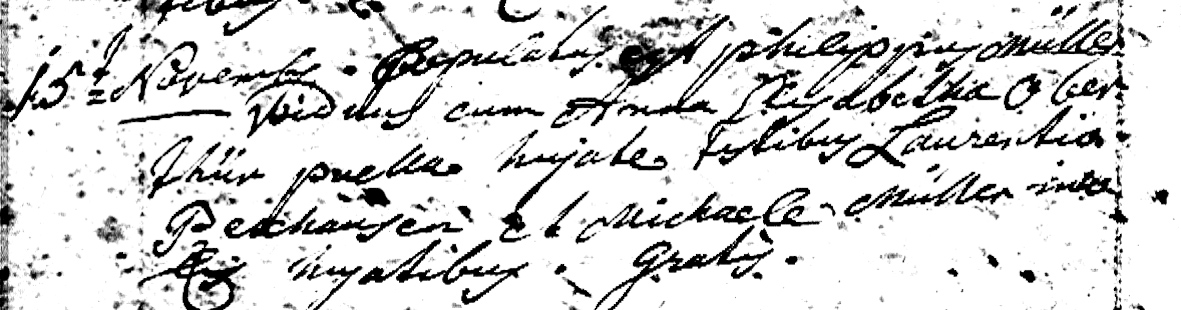 15t Novembr. Copulatus est philippus Müller
Viduus cum Anna Elysabetha Ober
thür puella hujate testibus Laurentio
Bexhäuser et Michaele Müller
hujatibus. Gratis.